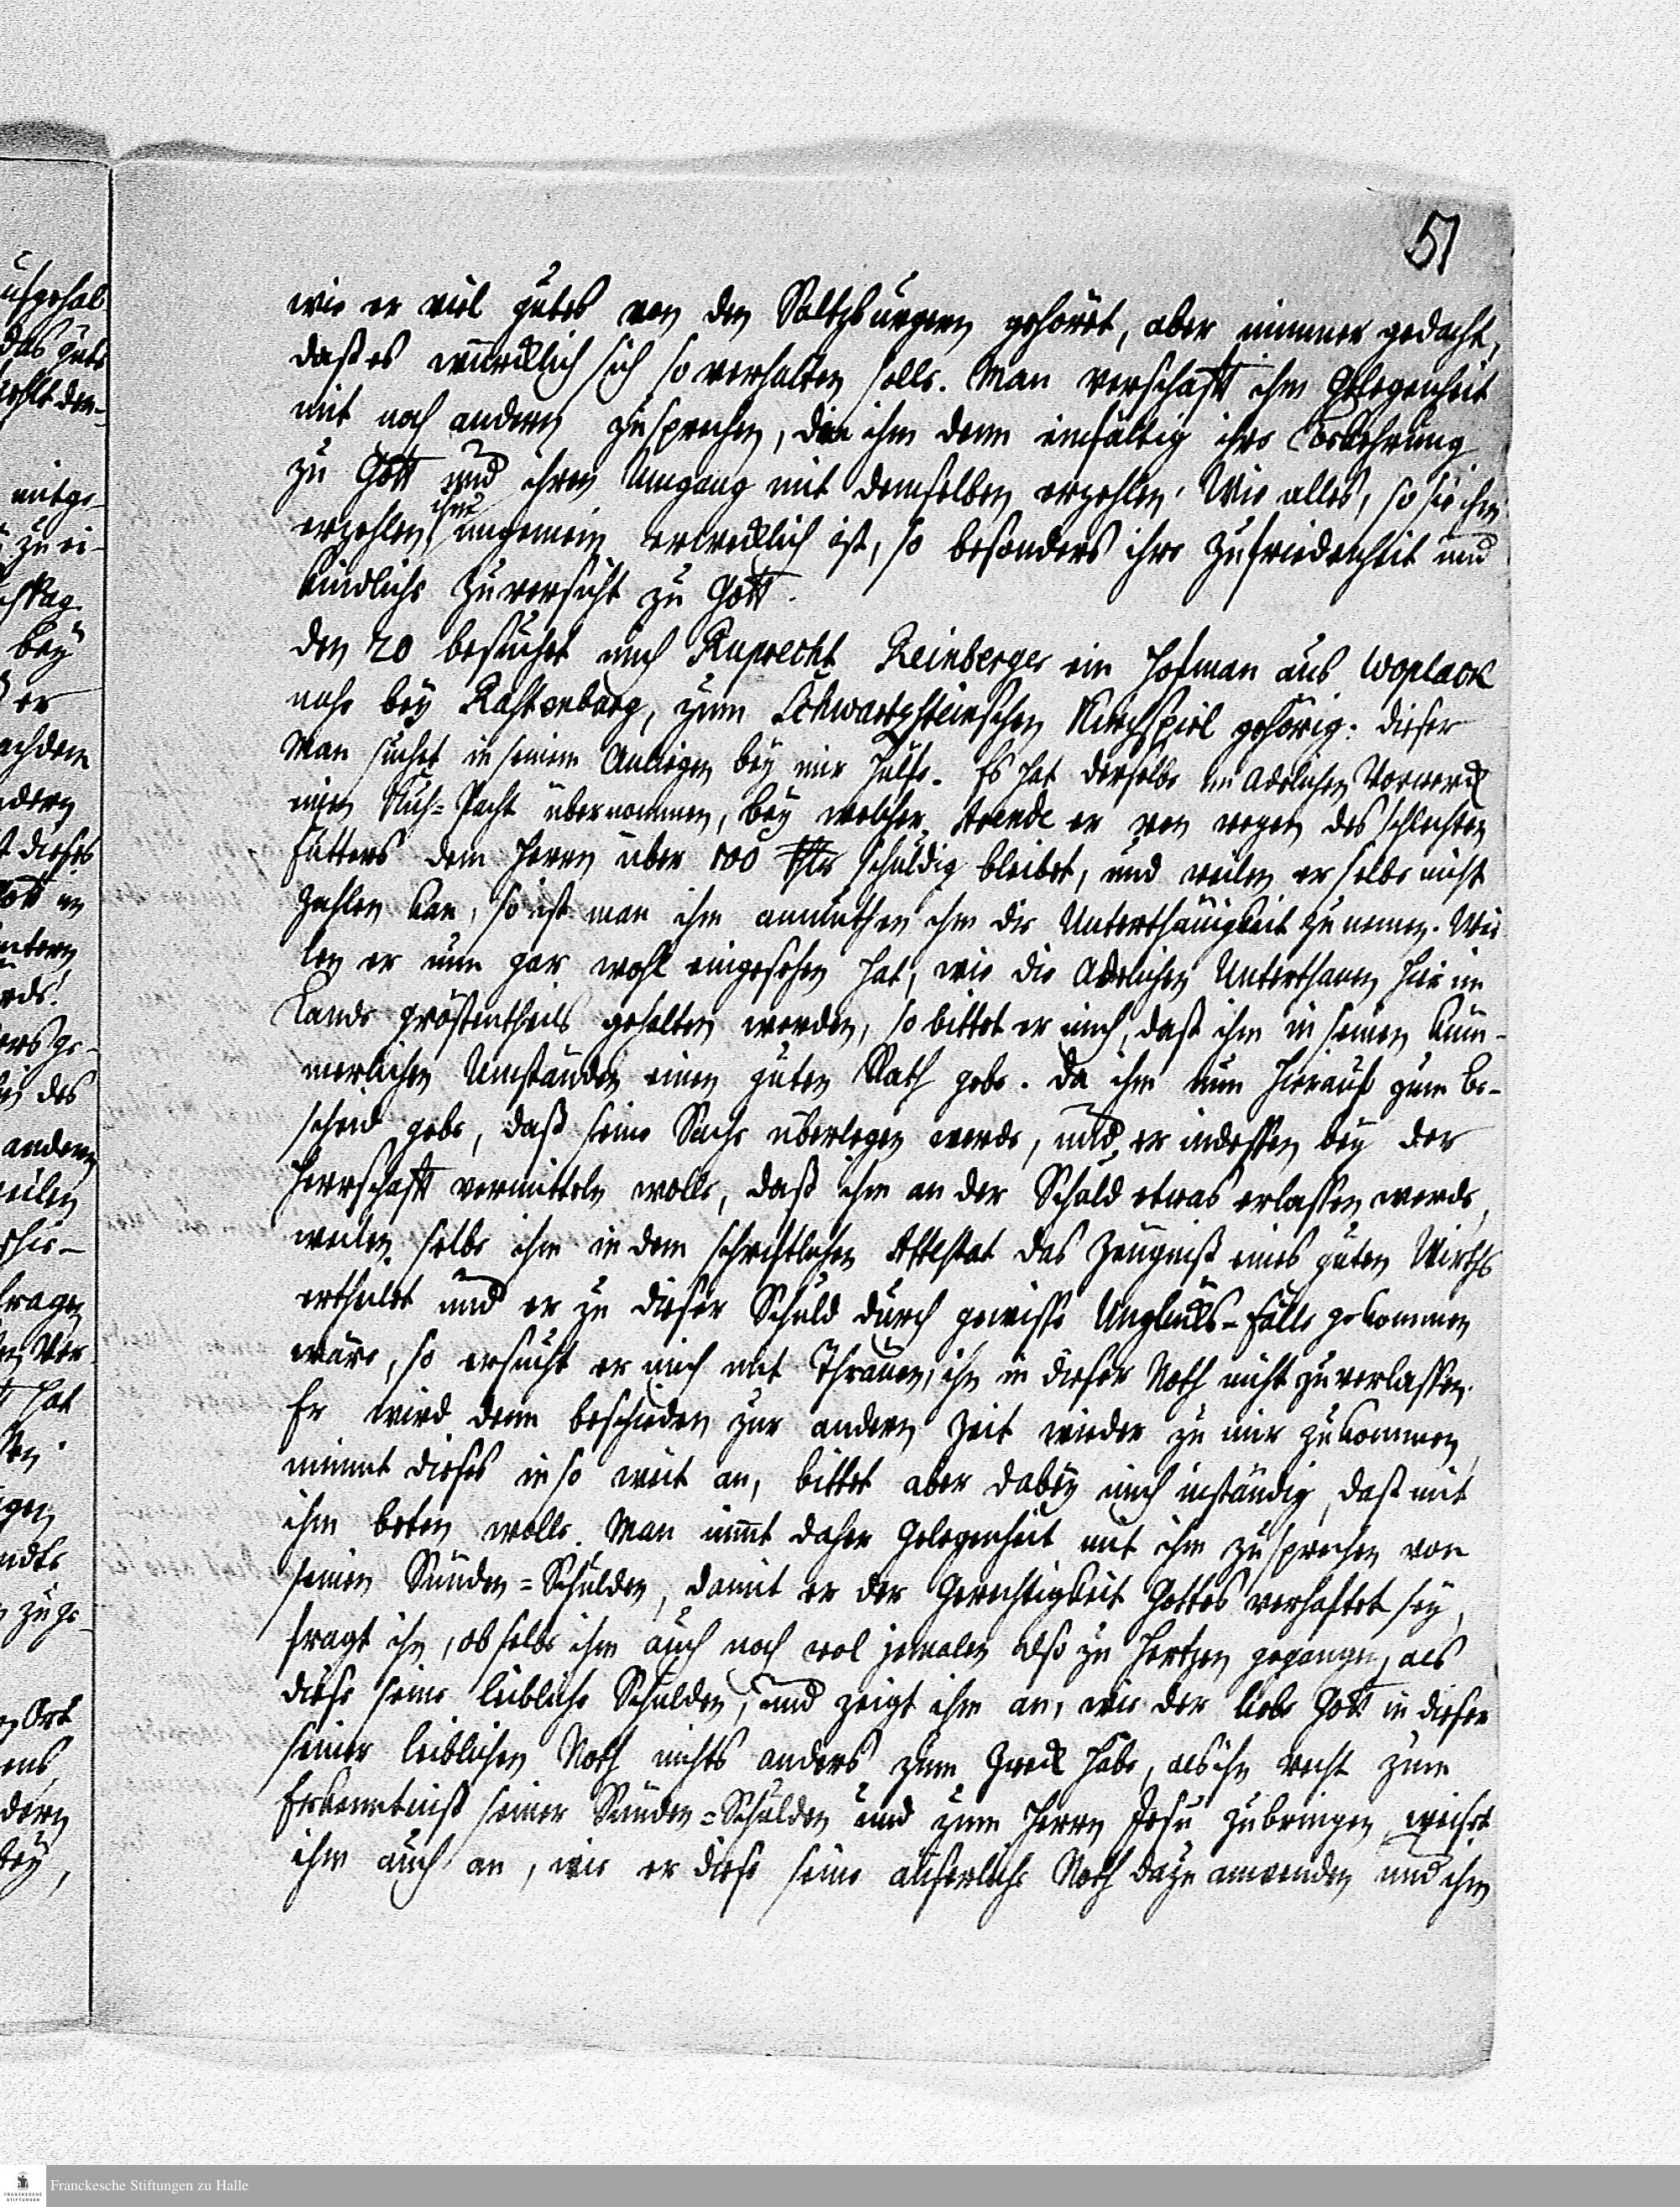 51
wie er viel gutes von den Saltzburgern gehöret, aber nimmer gedacht,
daß es würcklich sich so verhalten solle. Man verschafft ihm Gelegenheit
mit noch andern zusprechen, die ihm denn einfältig ihre Bekehrung
zu Gott und ihren Umgang mit demselben erzehlen. Wie alles, so sie ihm
ihm
erzehlen, ungemein erwecklich ist, so besonders ihre Zufriedenheit und
kindliche Zuversicht zu Gott.
Den 20 besuchet mich Ruprecht Reinberger ein Hofman aus Woplack
nahe bey Rastenburg, zum Schwartzsteinschen Kirchspiel gehörig. Dieser
Man suchet in seinem Anliegen bey mir Hülfe. Es hat derselbe im Adelichen Vorwerck
einen Kuh=Pacht übernommen, bey welcher Arende er von wegen des schlechten
Futters dem Herrn über 100 schuldig bleibet, und weilen er selbe nicht
zahlen kan, so ist man ihm anmuthen ihm die Unterthänigkeit zu nemen. Wei
len er nun gar wohl eingesehen hat, wie die Adelichen Unterthanen hier im
Lande gröstentheils gehalten werden, so bittet er mich, daß ihm in seinen küm-
merlichen Umständen einen guten Rath gebe. Da ihm nun hierauf zum be-
scheid gebe, daß seine Sache überlegen werde, und er indessen bey der
Herrschafft vermitteln wolle, daß ihm an der Schuld etwas erlassen werde,
weilen selbe ihm in dem schriftlichen Attestat das Zeugniß eines guten Wirths
ertheilet und er zu dieser Schuld durch gewisse Unglücks-Fälle gekommen
wäre, so ersucht er mich mit Thränen, ihn in dieser Noth nicht zu verlassen.
Er wird denn beschieden zur andern Zeit wieder zu mir zukommen,
nimmt dieses in so weit an, bittet aber dabey mich inständig, daß mit
ihm beten wolle. Man nimt daher Gelegenheit mit ihm zusprechen von
seinen Sünden=Schulden, damit er der Gerechtigkeit Gottes verhaftet sey,
fragt ihn, ob selbe ihm auch noch wol jemalen also zu Hertzen gegangen, als
diese seine leibliche Schulden, und zeigt ihm an, wie der liebe Gott in dieser
seiner leiblichen Noth nichts anders zum Zweck habe, als ihn recht zum
Erkenntniß seiner Sünden=Schulden und zum Herrn Jesu zubringen, weiset
ihm auch an, wie er diese seine äuserliche Noth dazu anwenden und ihm
Franckesche Stiftungen zu Halle